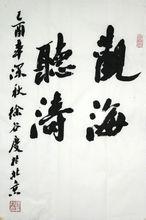 觀海
聽濤
乙酉年深秋徐谷慶于北京